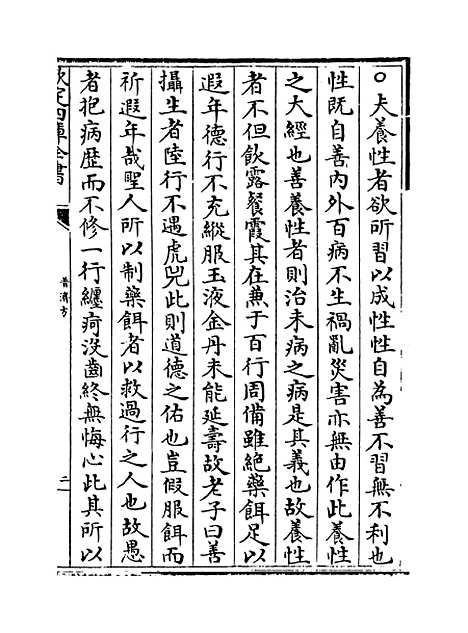 ○夫養性者欲所習以成性性自為善不習無不利也
性既自善内外百病不生禍亂災害亦無由作此養性
之大經也善養性者則治未病之病是其義也故養性
者不但飲露餐霞其在兼于百行周備雖絶藥餌足以
遐年德行不充縱服玉液金丹未能延壽故老子曰善
攝生者陸行不遇虎兕此則道德之佑也豈假服餌而
祈遐年哉聖人所以制藥餌者以救過行之人也故愚
者抱病歴而不修一行纏疴没齒終無悔心此其所以
欽定四庫全書
普濟方
二